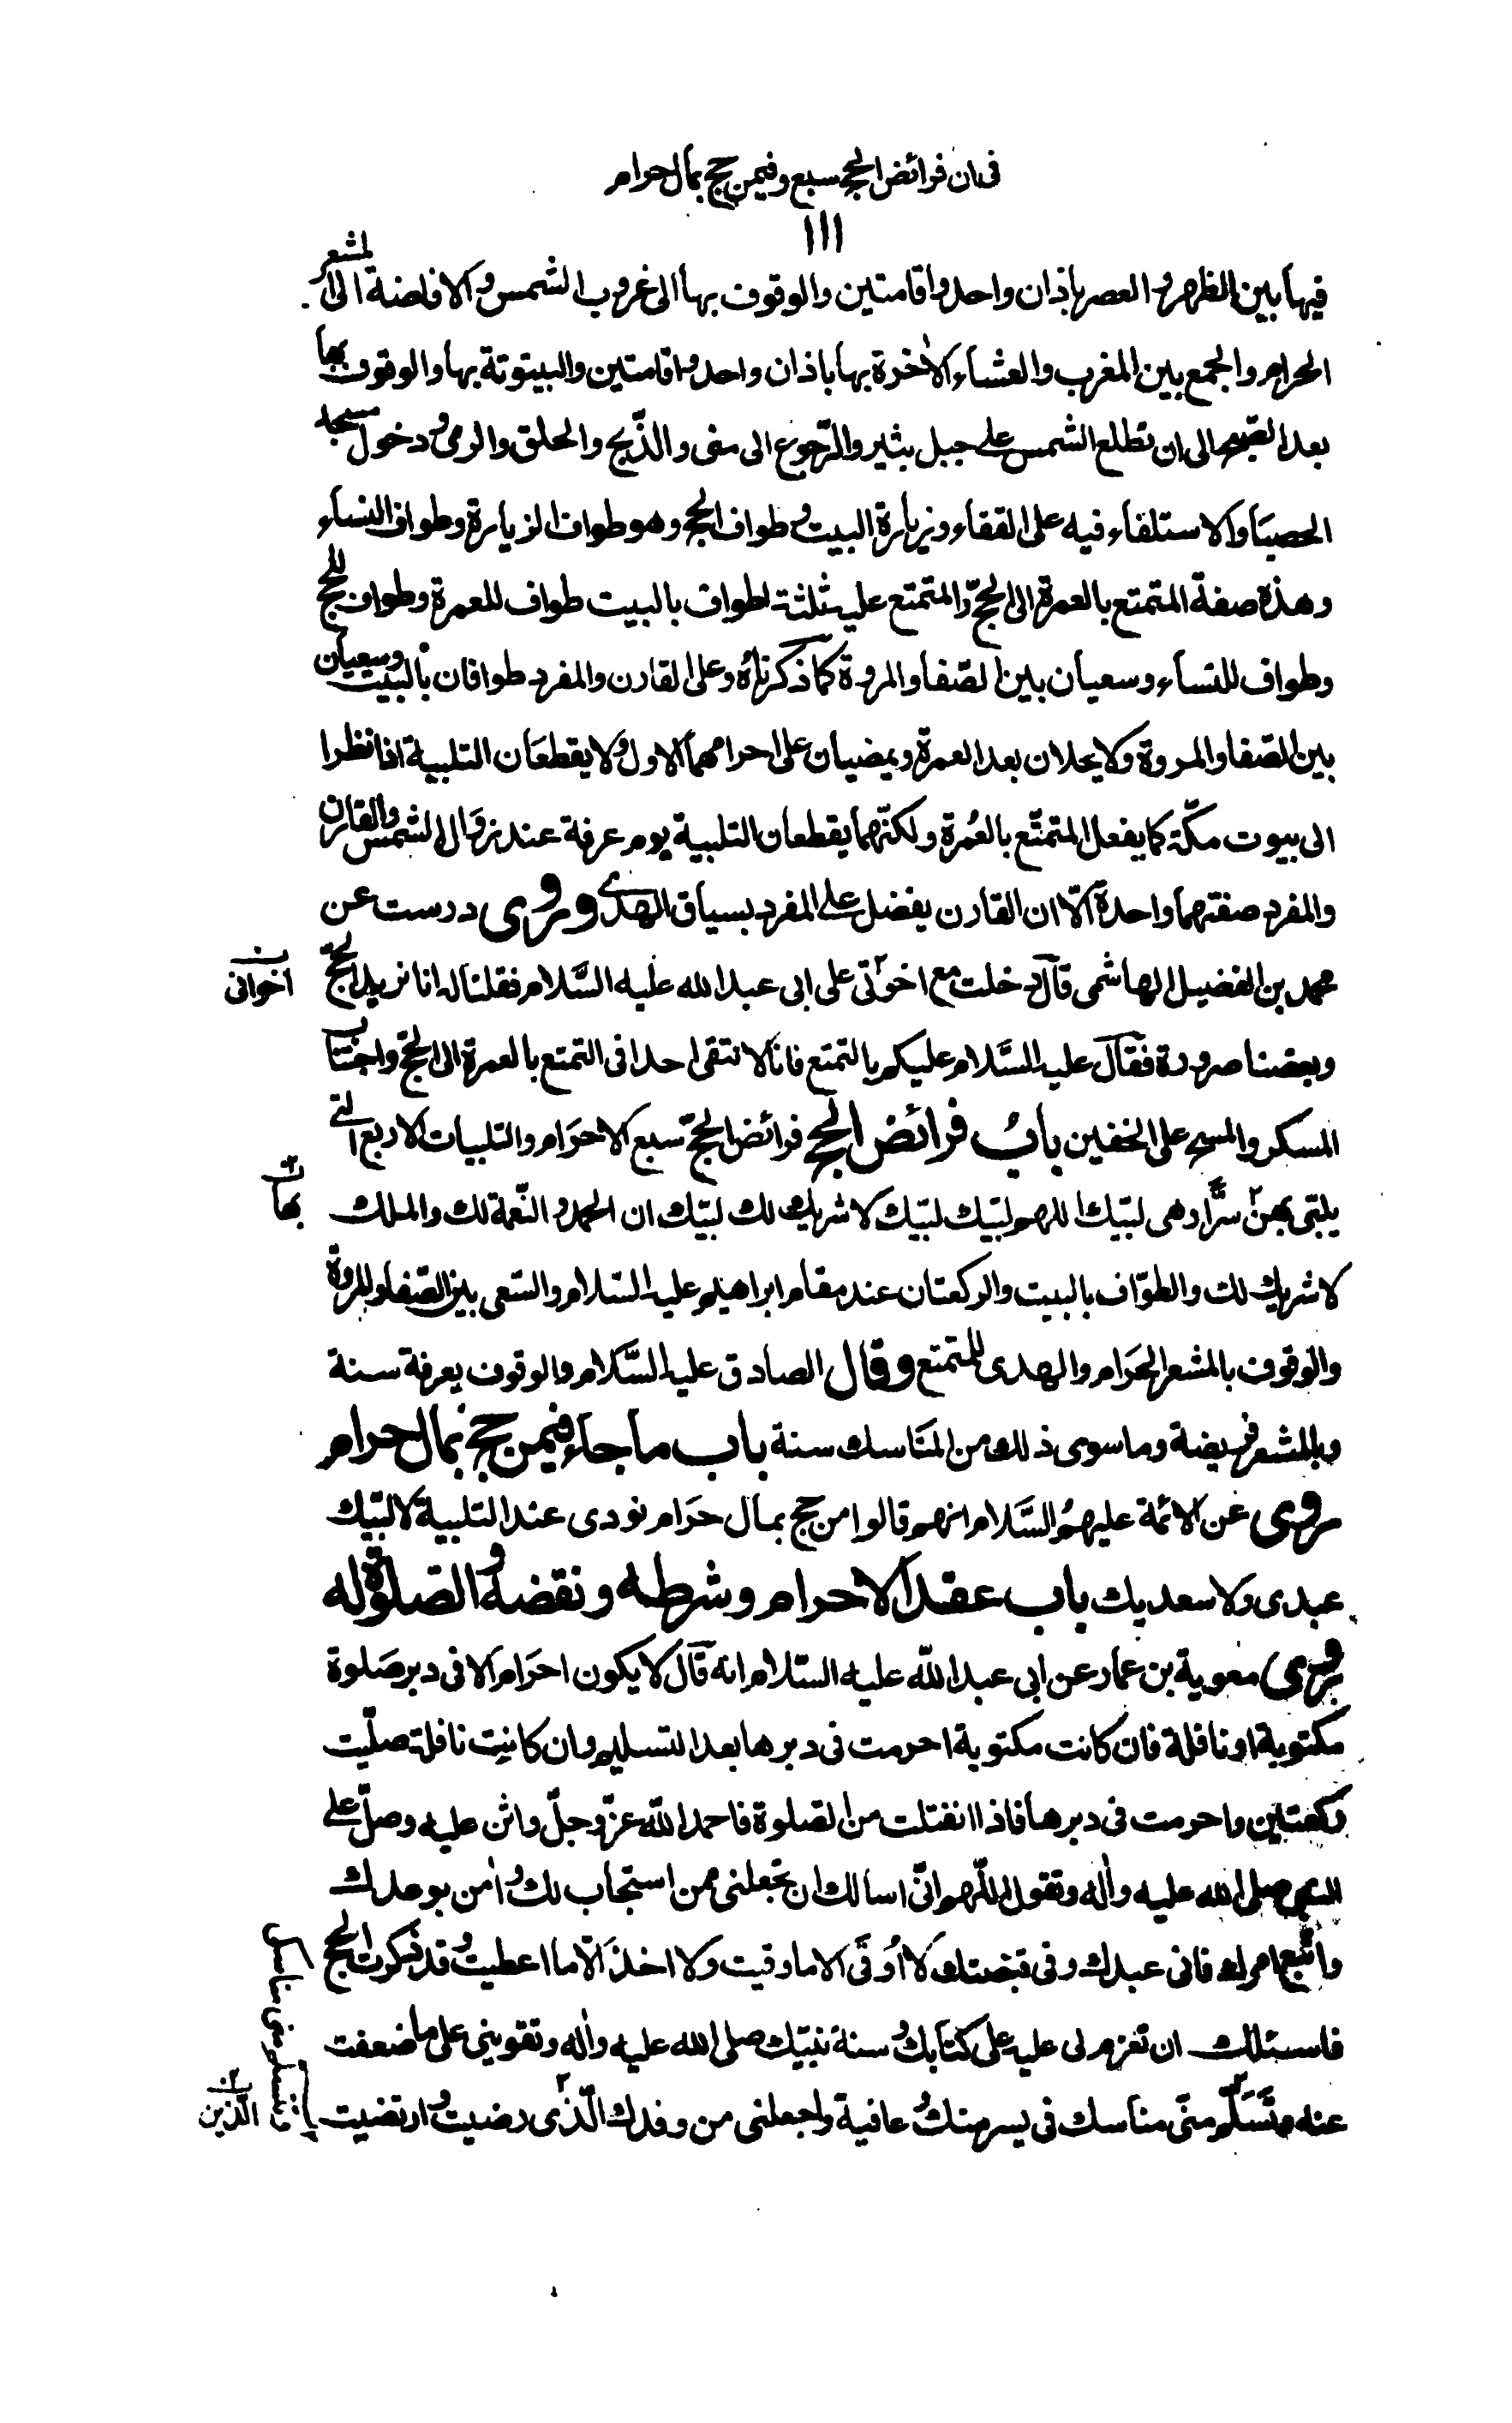 فی ان فرائض الحج سبع و فیمن حج بمال حرام
١١١
فیها بین الظهر و العصر باذان واحد و اقامتین والوقوف بها الی غروب الشمس و الافاضة الی المشعر
الحرام والجمع بین المغرب والعشاء الاخرة بها باذان واحد و اقامتین والبیتوتة بها والوقوف بها
بعد الصبح الی ان تطلع الشمس علی جبل بثیر والرّجوع الی منی و الذّبح والحلق والرمی و دخول مسجد
الحصبا والاستلقاء فیه علی القفاء و زیارة البیت و طواف الحج وهو طواف الزیارة وطواف النساء
وهذه صفة المتمتع بالعمرة الی الحجّ والمتمتع علیه ثلثة اطواف بالبیت طواف للعمرة وطواف للحج
وطواف للنساء وسعیان بین الصّفا والمروة کما ذکرناه وعلی القارن والمفرد طوافان بالبیت وسعیان
بین الصّفا والمروة ولا یحلان بعد العمرة ویمضیان علی احرامهما الاول ولا یقطعان التلبیة اذا نظرا
الی بیوت مکّة کما یفعل المتمتّع بالعُمرة ولکنّهما یقطعان التلبیة یوم عرفة عند زوال الشمس والقارن
والمفرد صفتهما واحدة الّا ان القارن یفضل علی المفرد بسیاق الهدی وروی درست عن
محمد بن الفضیل الهاشمی قال دخلت مع اخوتی علی ابی عبد الله علیه السَّلام فقلنا له انا نرید الحجّ
اخوانی
وبعضنا صرورة فقال علیه السَّلام علیکم بالتمتع فانا لا نتقی احدا فی التمتع بالعمرة الی الحجّ واجتناب
المسکر والمسح علی الخفین باب فرائض الحج فرائض الحجّ سبع الاحرام والتلبیات الاربع التی
یلبّی بهنّ سرًّا وهی لبّیك اللهم لبّیك لبّیك لا شریك لك لبّیك ان الحمد والنّعمة لك والملك
بها
لا شریك لك والطوّاف بالبیت والرکعتان عند مقام ابراهیم علیه السّلام والسّعی بین الصّفا والمروة
والوقوف بالمشعر الحرام والهدی للمتمتع وقال الصادق علیه السَّلام والوقوف بعرفة سنة
وبالمشعر فریضة وما سوی ذلك من المناسك سنة باب ما جاء فیمن حج بمال حرام
روی عن الائمة علیهمُ السَّلام انهم قالوا من حج بمال حرام نودی عند التلبیة لا لبّیك
عبدی ولا سعدیك باب عقد الاحرام وشرطه ونقضه والصّلوة له
روی معویة بن عمار عن ابی عبد اللّه علیه السّلام انه قال لا یکون احرام الا فی دبر صلوة
مکتوبة او نافلة فان کانت مکتوبة احرمت فی دبرها بعد التسلیم وان کانت نافلة صلّیت
رکعتین واحرمت فی دبرها فاذا انفتلت من الصلوة فاحمد اللّه عزّ وجلّ واثن علیه وصلّ علی
النبی صلی الله علیه واٰله وتقول اللّهم انّی اسالك ان تجعلنی ممن استجاب لك واٰمن بوعدك
واتّبع امرك فانی عبدك وفی قبضتك لا اُوقَی الا ما وقیت ولا اخذ الّا ما اعطیت وقد ذکرت الحج
فاسئلك ان تعزم لی علیه علی کتابك وسنة نبیّك صلی الله علیه واٰله وتقوینی علی ما ضعفت
عنه وتَسَلّم منّی مناسك فی یسر منك وعافیة واجعلنی من وفدك الّذی رضیت وارتضیت
الّذین